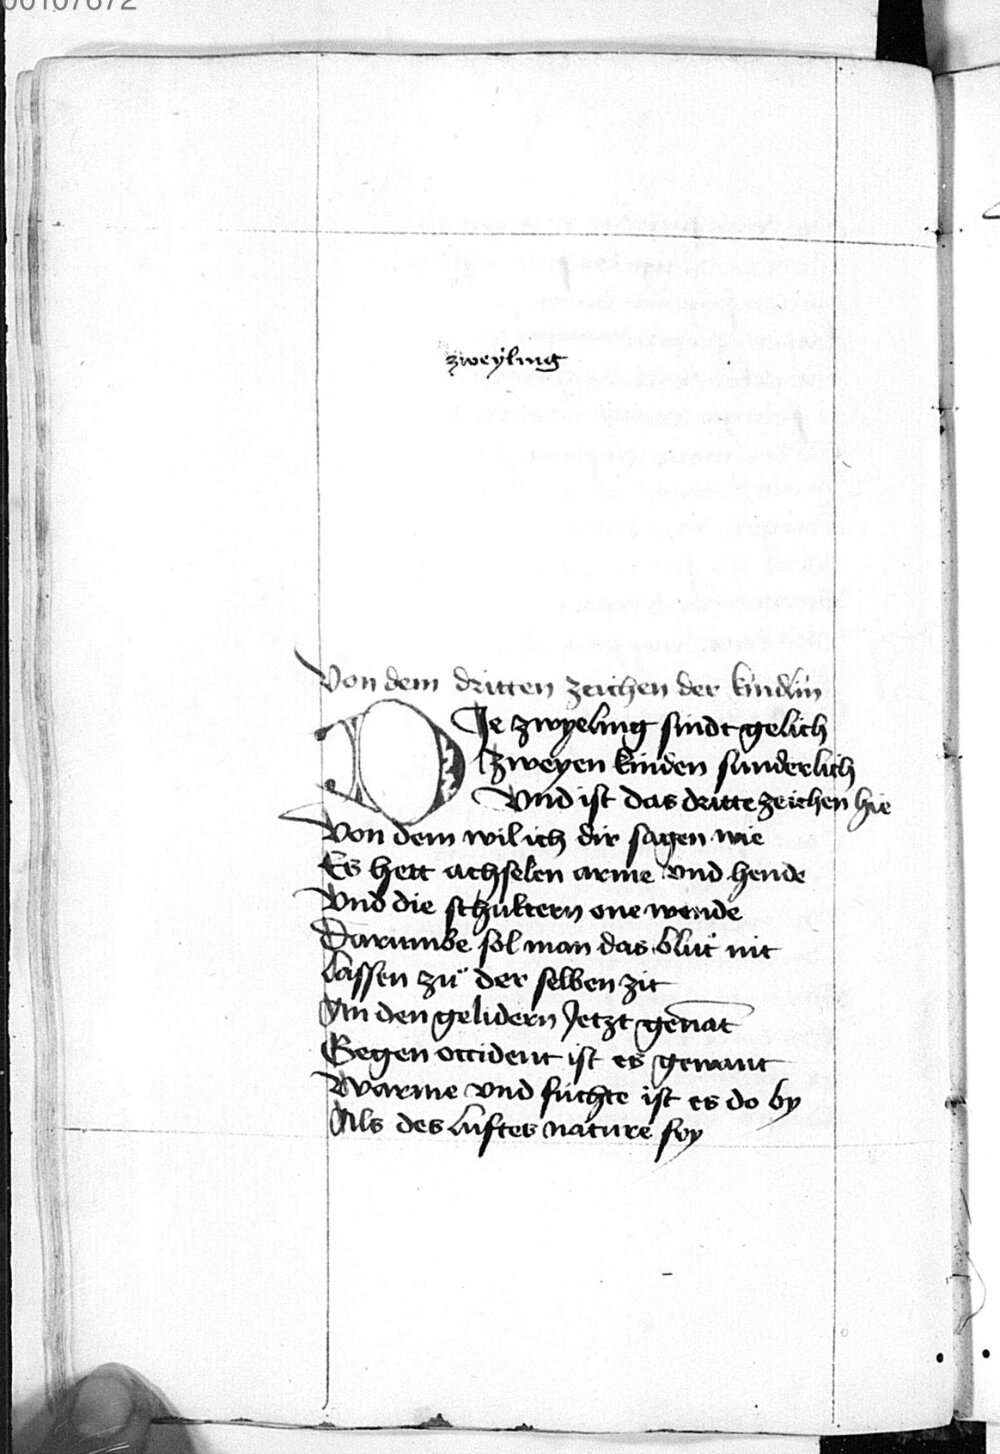 00107672
zweyling
Von dem dritten zeichen der kindlin
DIe zwyeling sindt gelich
zweyen kinden sunderlich
Vnd ist das dritte zeichen hie
Von dem wil ich dir sagen wie
Es hett achselen arme vnd hende
Vnd die schultern one wende
Darumbe sol man das blůt nit
Lassen zů der selben zit
An den gelidern Jetzt genāt
Gegen occident ist es gewant
Warme vnd fuchte ist es do by
Als des luftes nature sy